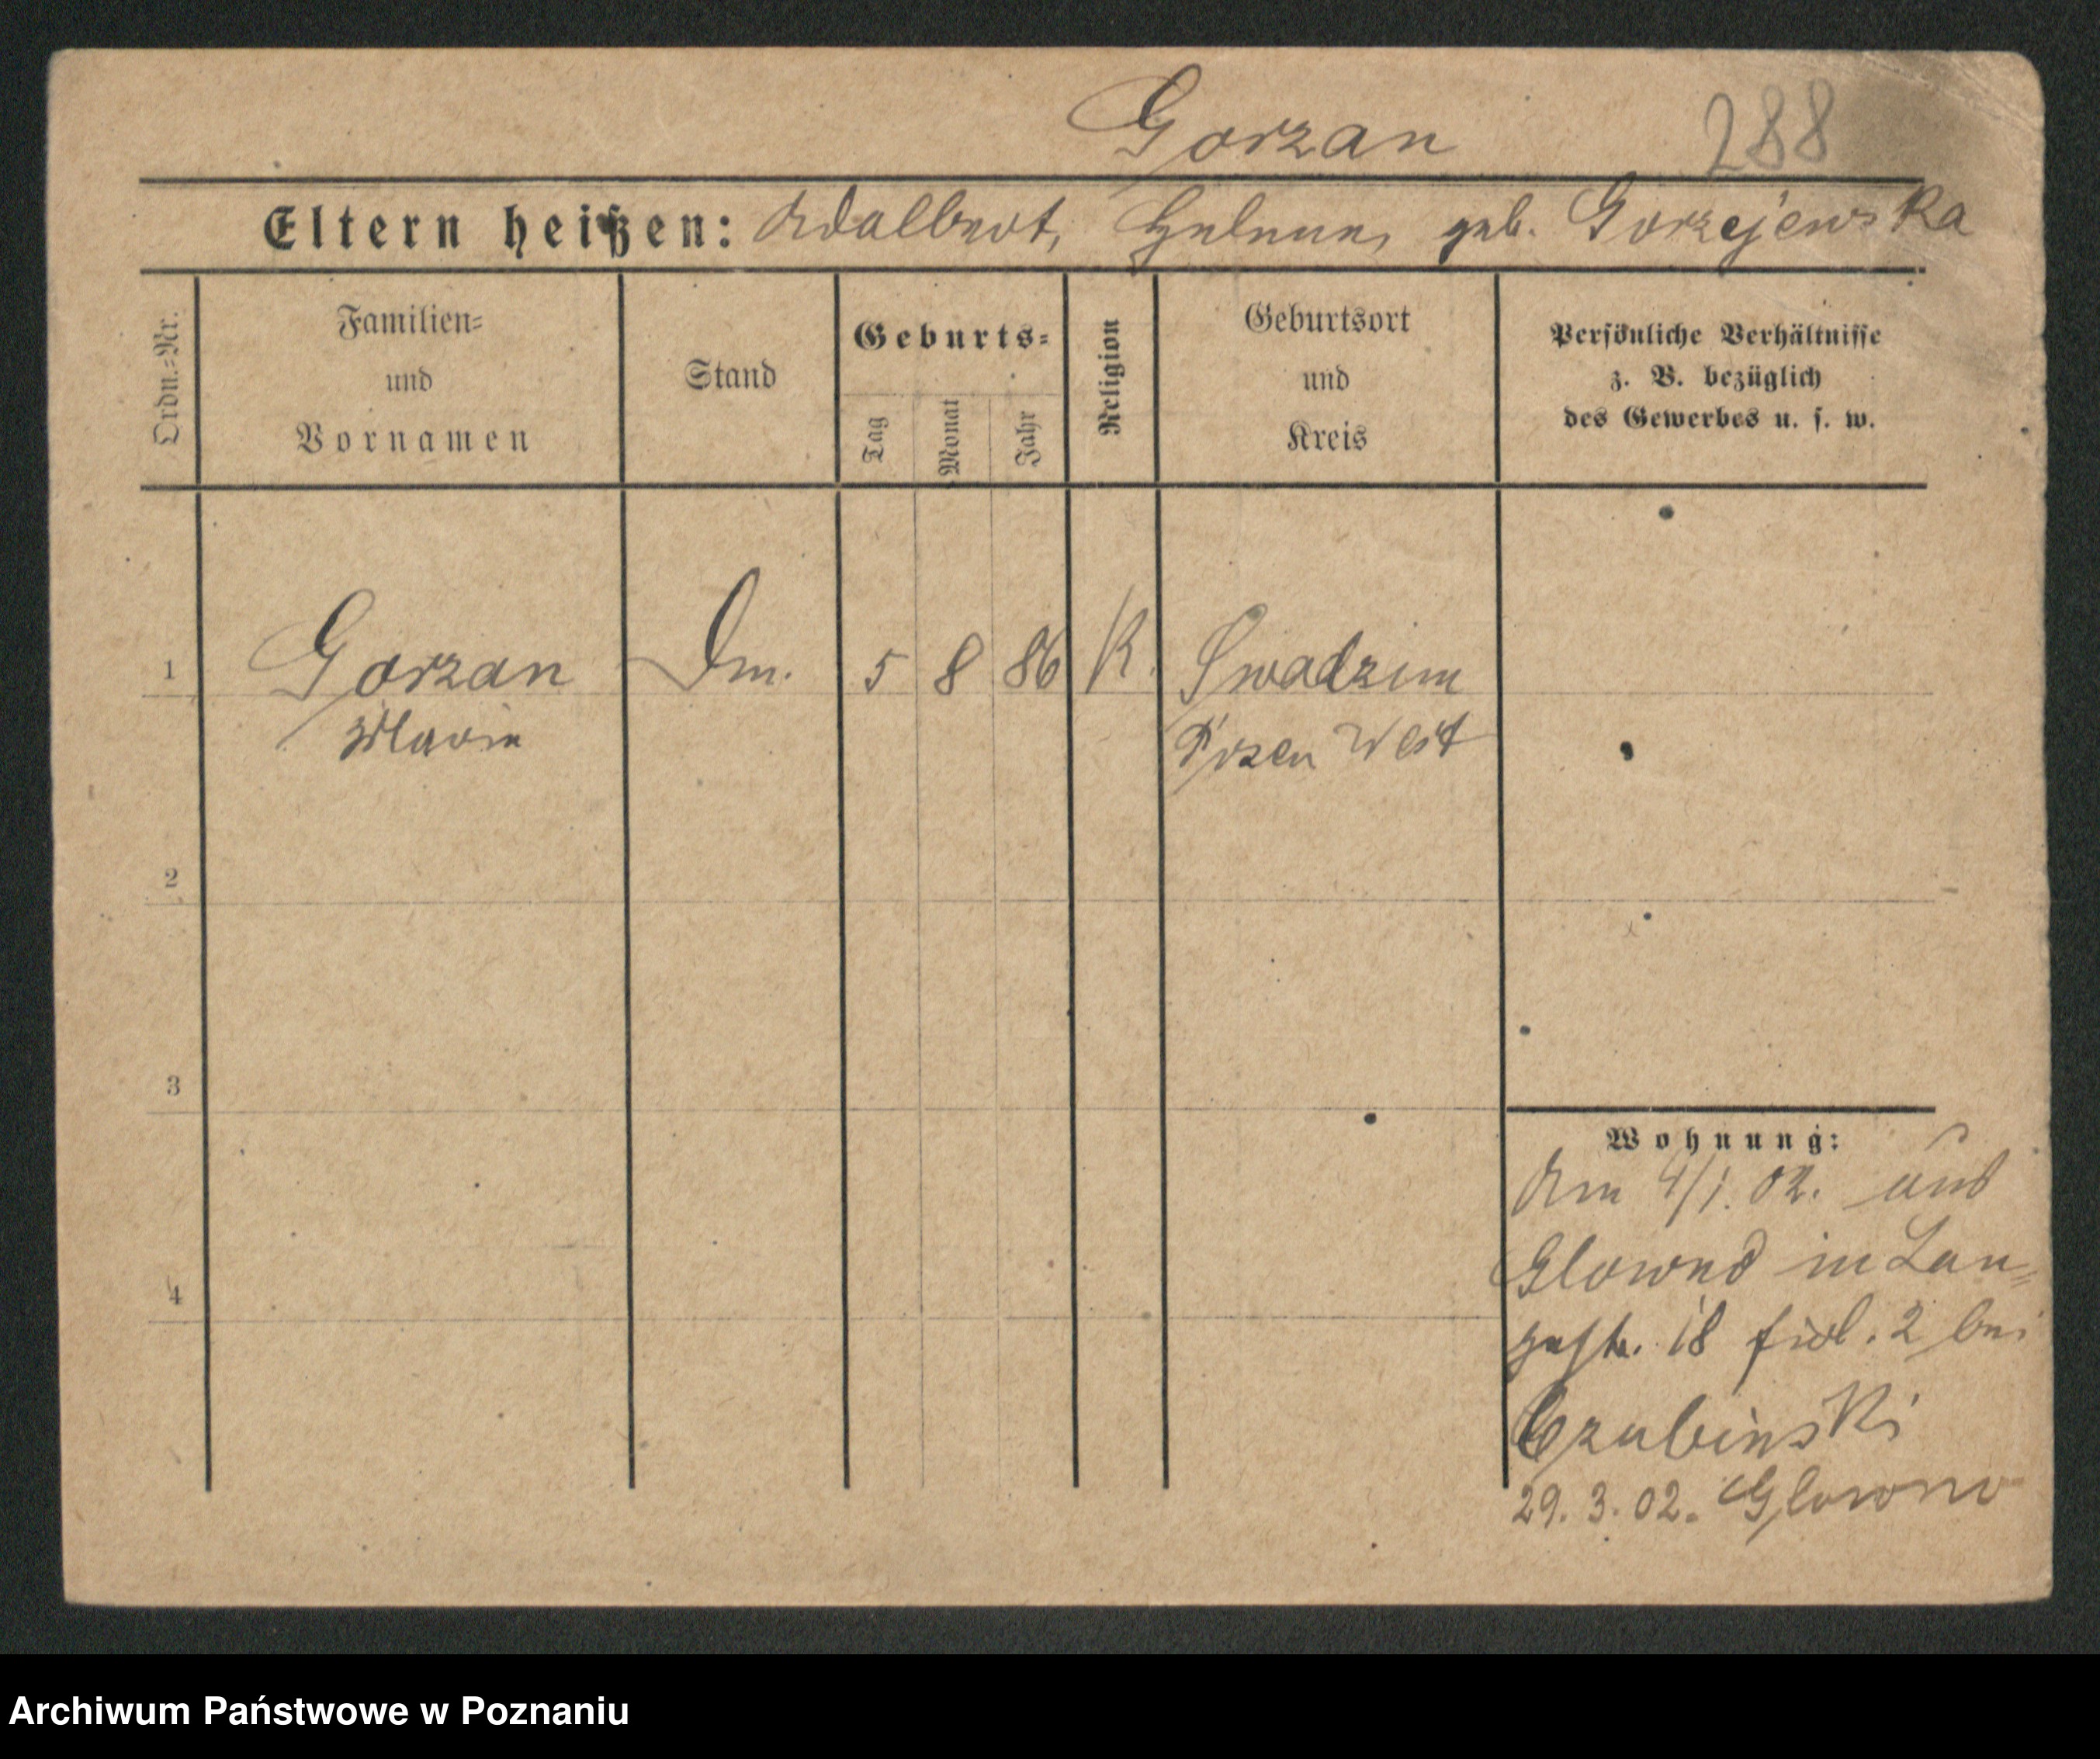 Gorzan 288
Eltern heißen: Adalbert, Helene, geb. Gorzejewska
Ordn.=Nr.
Familien=
und
Vornamen
Stand
Geburts=
Tag
Monat
Jahr
Religion
Geburtsort
und
Kreis
Persönliche Verhältnisse
z. B. bezüglich
des Gewerbes u. s. w.
1 Gorzan Dm. 5 8 86 K. Swadzim
Marie Posen West
2
3
4
Wohnung:
Am 4/1. 02. aus
Glowno in Lan=
gestr. 18 bei
Czubinski
29. 3. 02. Glowno
Archiwum Państwowe w Poznaniu